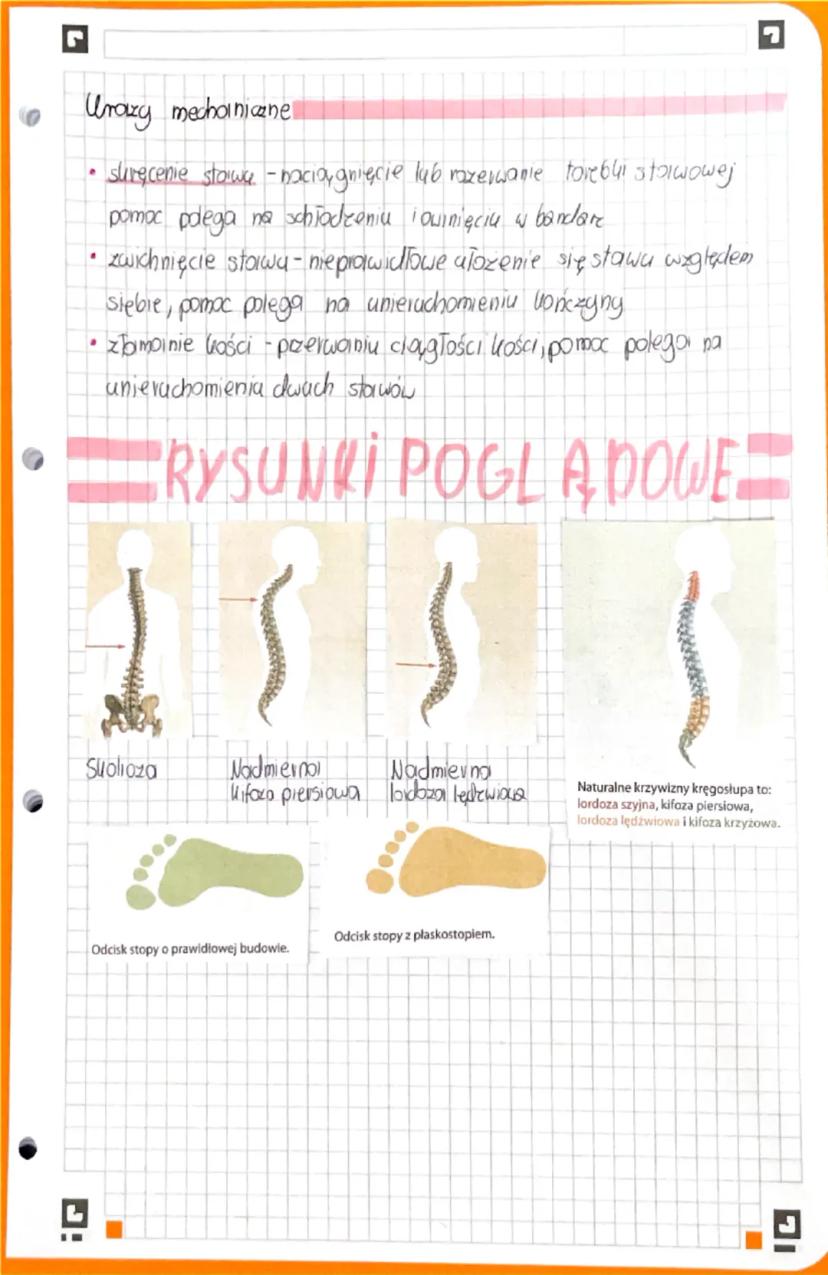 Urazy mechaniczne
• skręcenie stawu - naciągnięcie lub rozerwanie torebki stawowej
pomoc polega na schłodzeniu i owinięciu w bandaż
• zwichnięcie stawu - nieprawidłowe ułożenie się stawu względem
siebie, pomoc polega na unieruchomieniu kończyny
• złamanie kości - przerwaniu ciągłości kości, pomoc polega na
unieruchomieniu dwach stawów
RYSUNKI POGLĄDOWE
Skolioza
Nadmierna
kifoza piersiowa
Nadmierna
lordoza lędźwiowa
Naturalne krzywizny kręgosłupa to:
lordoza szyjna, kifoza piersiowa,
lordoza lędźwiowa i kifoza krzyżowa.
Odcisk stopy o prawidłowej budowie.
Odcisk stopy z płaskostopiem.